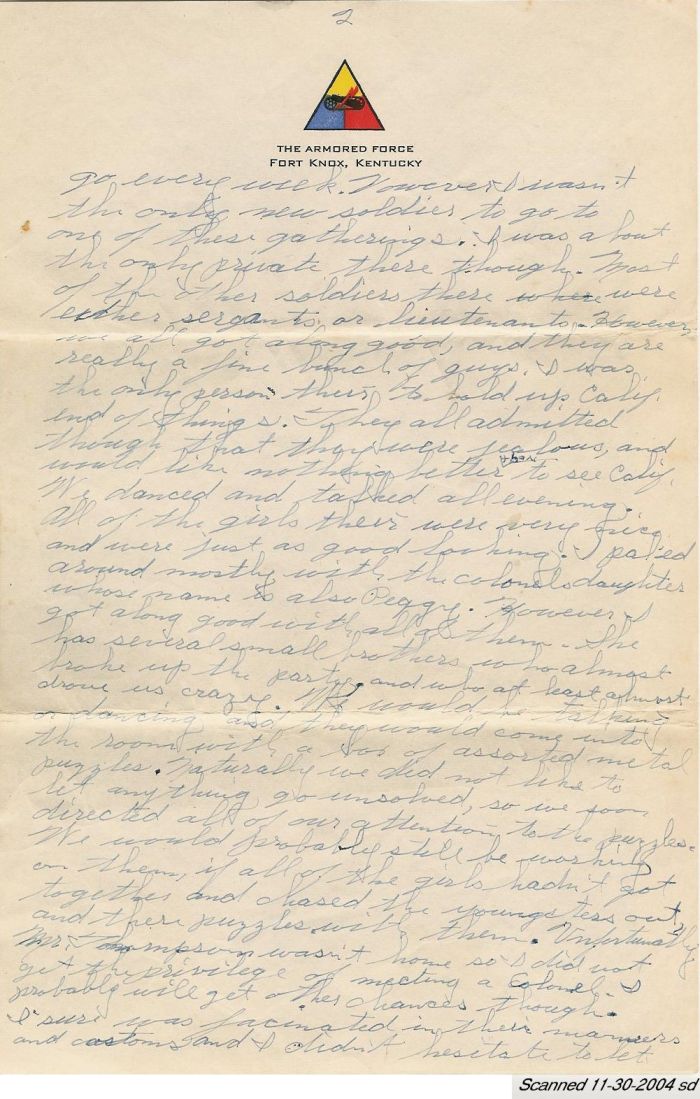 2
THE ARMORED FORCE
FORT KNOX, KENTUCKY
go every week. However I wasn't
the only new soldier to go to
one of these gatherings. I was about
the only private there though. Most
of the other soldiers there where were
either sergants, or lieutenants. However
we all got along good, and they are
really a fine bunch of guys. I was
the only person there to hold up Calif.
end of things. They all admitted
though that they were jealous, and
would like nothing better than to see Calif.
We danced and talked all evening.
All of the girls there were very nice
and were just as good looking. I paled
around mostly with the colonels daughter
whose name is also Peggy. However I
got along good with all of them. She
has several small brothers who almost
broke up the party, and who at least almost
drove us crazy. We would be talking
or dancing and they would come into
the room with a box of assorted metal
puzzles. Naturally we did not like to
let anything go unsolved, so we soon
directed all of our attention to the puzzles.
We would probably still be working
on them, if all of the girls hadn't got
together and chased the youngsters out,
and there puzzles with them. Unfortunatly
Mr. Thompson wasn't home so I did not
get the privilege of meeting a Colonel. I
probably will get other chances though.
I sure was facinated in there manners
and customs and I didn't hesitate to let
Scanned 11-30-2004 sd